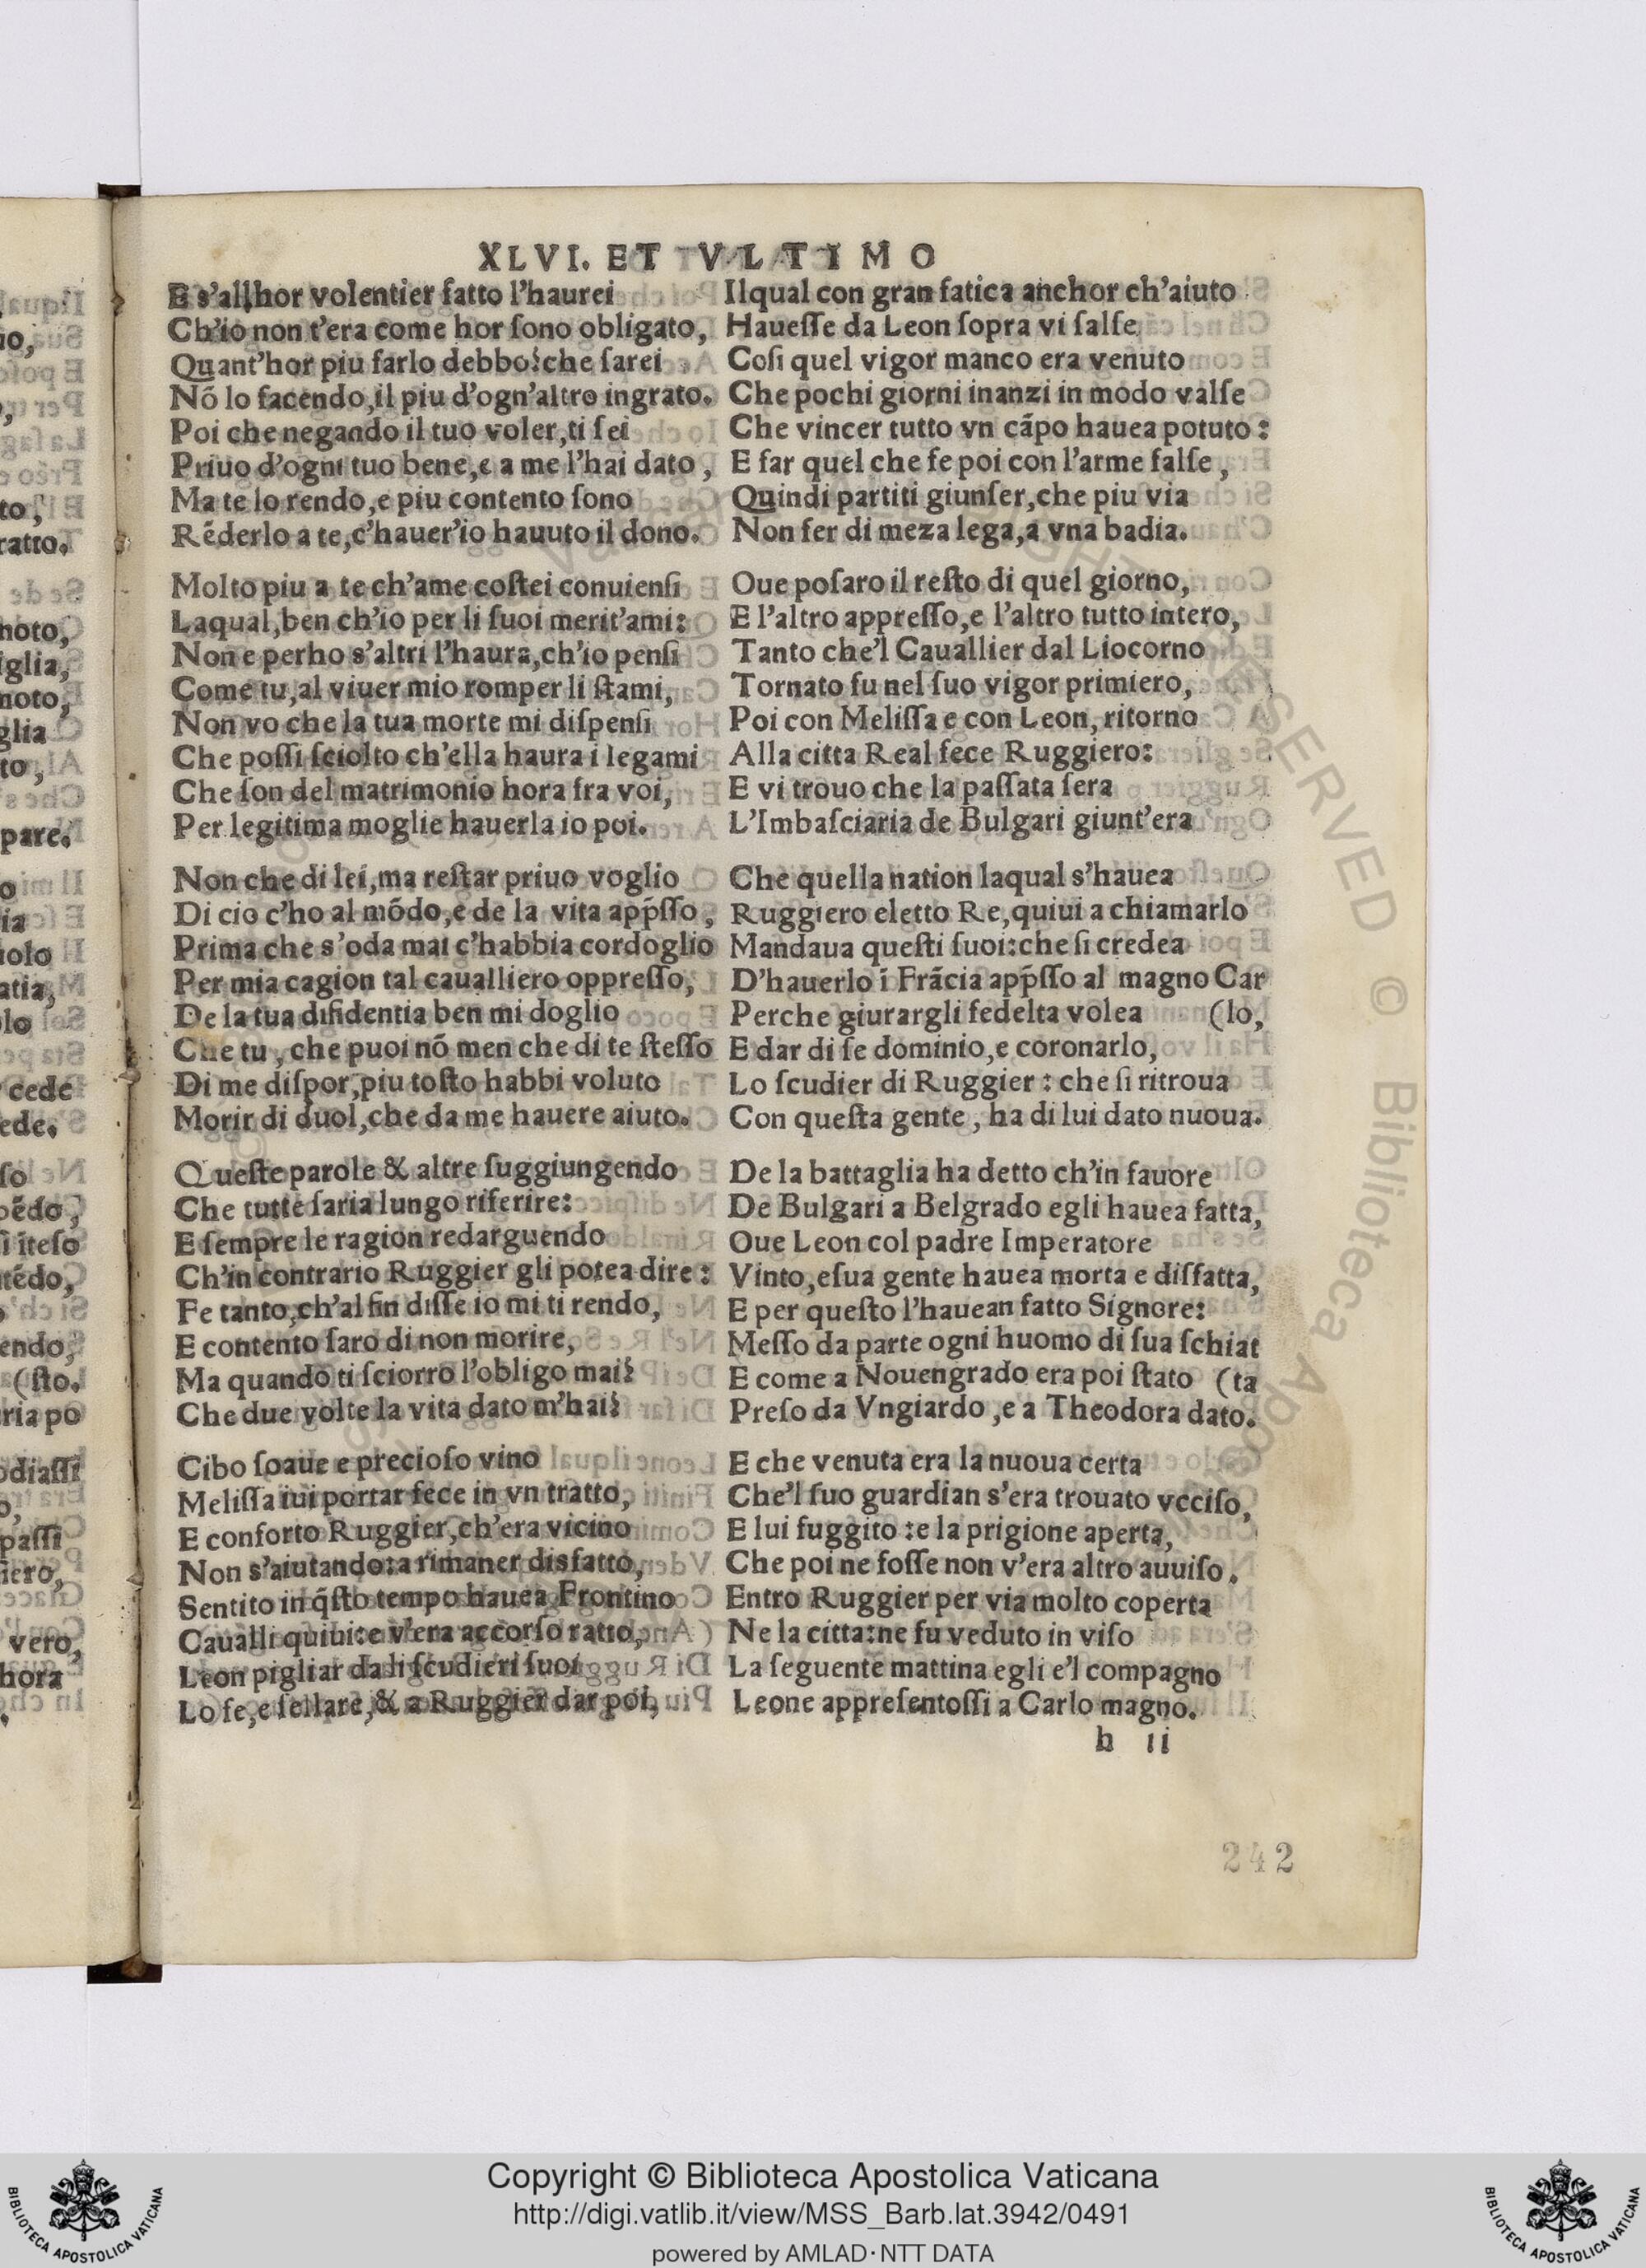 XLVI. ET VLTIMO
E s'allhor volentier fatto l'haurei
Ch'io non t'era come hor ſono obligato,
Quant'hor piu farlo debbo? che ſarei
Nõ lo facendo, il piu d'ogn'altro ingrato.
Poi che negando il tuo voler, ti fei
Priuo d'ogni tuo bene, e a me l'hai dato,
Ma te lo rendo, e piu contento ſono
Rẽderlo a te, c'hauer'io hauuto il dono.
Molto piu a te ch'ame coſtei conuienſi
Laqual, ben ch'io per li ſuoi merit'ami:
Non e perho s'altri l'haura, ch'io penſi
Come tu, al viuer mio romper li ſtami,
Non vo che la tua morte mi diſpenſi
Che poſſi ſciolto ch'ella haura i legami
Che ſon del matrimonio hora fra voi,
Per legitima moglie hauerla io poi.
Non che di lei, ma reſtar priuo voglio
Di cio c'ho al mõdo, e de la vita app̃ſſo,
Prima che s'oda mai c'habbia cordoglio
Per mia cagion tal caualliero oppreſſo,
De la tua difidentia ben mi doglio
Che tu, che puoi nõ men che di te ſteſſo
Di me diſpor, piu toſto habbi voluto
Morir di duol, che da me hauere aiuto.
Queſte parole & altre ſuggiungendo
Che tutte ſaria lungo riferire:
E ſempre le ragion redarguendo
Ch'in contrario Ruggier gli potea dire:
Fe tanto, ch'al fin diſſe io mi ti rendo,
E contento ſaro di non morire,
Ma quando ti ſciorro l'obligo mai?
Che due volte la vita dato m'hai?
Cibo ſoaue e precioſo vino
Meliſſa iui portar fece in vn tratto,
E conforto Ruggier, ch'era vicino
Non s'aiutando: a rimaner disfatto,
Sentito in q̃ſto tempo hauea Frontino
Caualli quiui: e v'era accorſo ratto,
Leon pigliar da li ſcudieri ſuoi
Lo fe, e ſellare, & a Ruggier dar poi,
Ilqual con gran fatica anchor ch'aiuto
Haueſſe da Leon ſopra vi ſalſe
Coſi quel vigor manco era venuto
Che pochi giorni inanzi in modo valſe
Che vincer tutto vn cãpo hauea potuto:
E far quel che fe poi con l'arme falſe,
Quindi partiti giunſer, che piu via
Non fer di meza lega, a vna badia.
Oue poſaro il reſto di quel giorno,
E l'altro appreſſo, e l'altro tutto intero,
Tanto che'l Cauallier dal Liocorno
Tornato fu nel ſuo vigor primiero,
Poi con Meliſſa e con Leon, ritorno
Alla citta Real fece Ruggiero:
E vi trouo che la paſſata ſera
L'Imbaſciaria de Bulgari giunt'era
Che quella nation laqual s'hauea
Ruggiero eletto Re, quiui a chiamarlo
Mandaua queſti ſuoi: che ſi credea
D'hauerlo ĩ Frãcia app̃ſſo al magno Car
Perche giurargli fedelta volea (lo,
E dar di ſe dominio, e coronarlo,
Lo ſcudier di Ruggier: che ſi ritroua
Con queſta gente, ha di lui dato nuoua.
De la battaglia ha detto ch'in fauore
De Bulgari a Belgrado egli hauea fatta,
Oue Leon col padre Imperatore
Vinto, e ſua gente hauea morta e disfatta,
E per queſto l'hauean fatto Signore:
Meſſo da parte ogni huomo di ſua ſchiat
E come a Nouengrado era poi ſtato (ta
Preſo da Vngiardo, e a Theodora dato.
E che venuta era la nuoua certa
Che'l ſuo guardian s'era trouato vcciſo,
E lui fuggito: e la prigione aperta,
Che poi ne foſſe non v'era altro auuiſo.
Entro Ruggier per via molto coperta
Ne la citta: ne fu veduto in viſo
La ſeguente mattina egli e'l compagno
Leone appreſentoſſi a Carlo magno.
h ii
242
Copyright © Biblioteca Apostolica Vaticana
http://digi.vatlib.it/view/MSS_Barb.lat.3942/0491
powered by AMLAD·NTT DATA
BIBLIOTECA APOSTOLICA VATICANA
BIBLIOTECA APOSTOLICA VATICANA